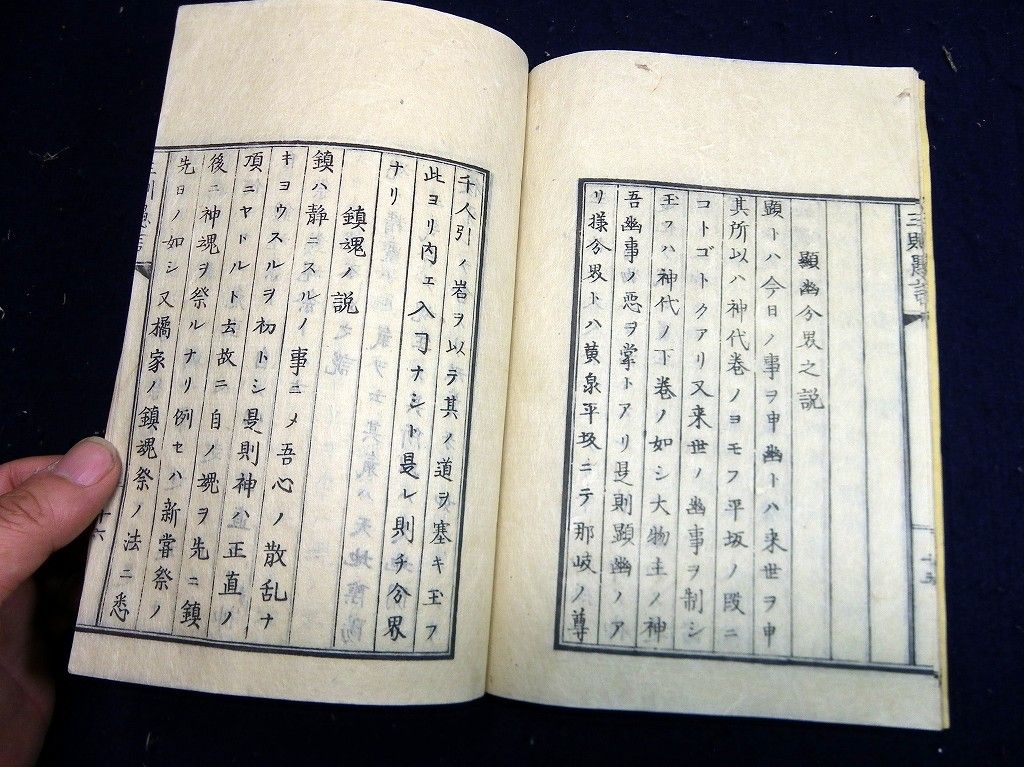 顯幽分界之説
顯トハ今日ノ事ヲ申幽トハ来世ヲ申
其所以ハ神代巻ノヨモフ平坂ノ段ニ
コトゴトクアリ又来世ノ幽事ヲ制シ
玉フハ神代ノ下巻ノ如シ大物主ノ神
吾幽事ノ悪ヲ掌トアリ是則顯幽ノア
リ様分界トハ黄泉平坂ニテ那岐ノ尊
十五
千人引ノ岩ヲ以テ其ノ道ヲ塞キ玉フ
此ヨリ内エ入ヿナシト是レ則チ分界
ナリ
鎮魂ノ説
鎮ハ静ニスルノ事ニメ吾心ノ散乱ナ
キヨウスルヲ初トシ是則神ハ正直ノ
頂ニヤトルト云故ニ自ノ魂ヲ先ニ鎮
後ニ神魂ヲ祭ルナリ例セハ新嘗祭ノ
先日ノ如シ又橘家ノ鎮魂祭ノ法ニ悉
十六